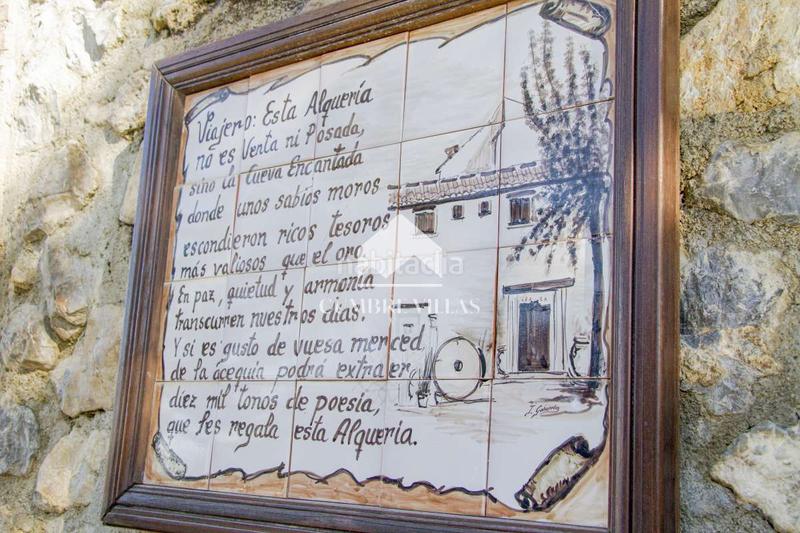 Viajero: Esta Alquería
y no es Venta ni Posada,
sino la Cueva Encantada
donde unos sabios moros
escondieron ricos tesoros
más valiosos que el oro.
En paz, quietud y armonía
transcurren nuestros días.
Y si es gusto de vuesa merced
de la acequia podrá extraer
diez mil tonos de poesía,
que les regala esta Alquería.
habitaclia
CUMBRE VILLAS